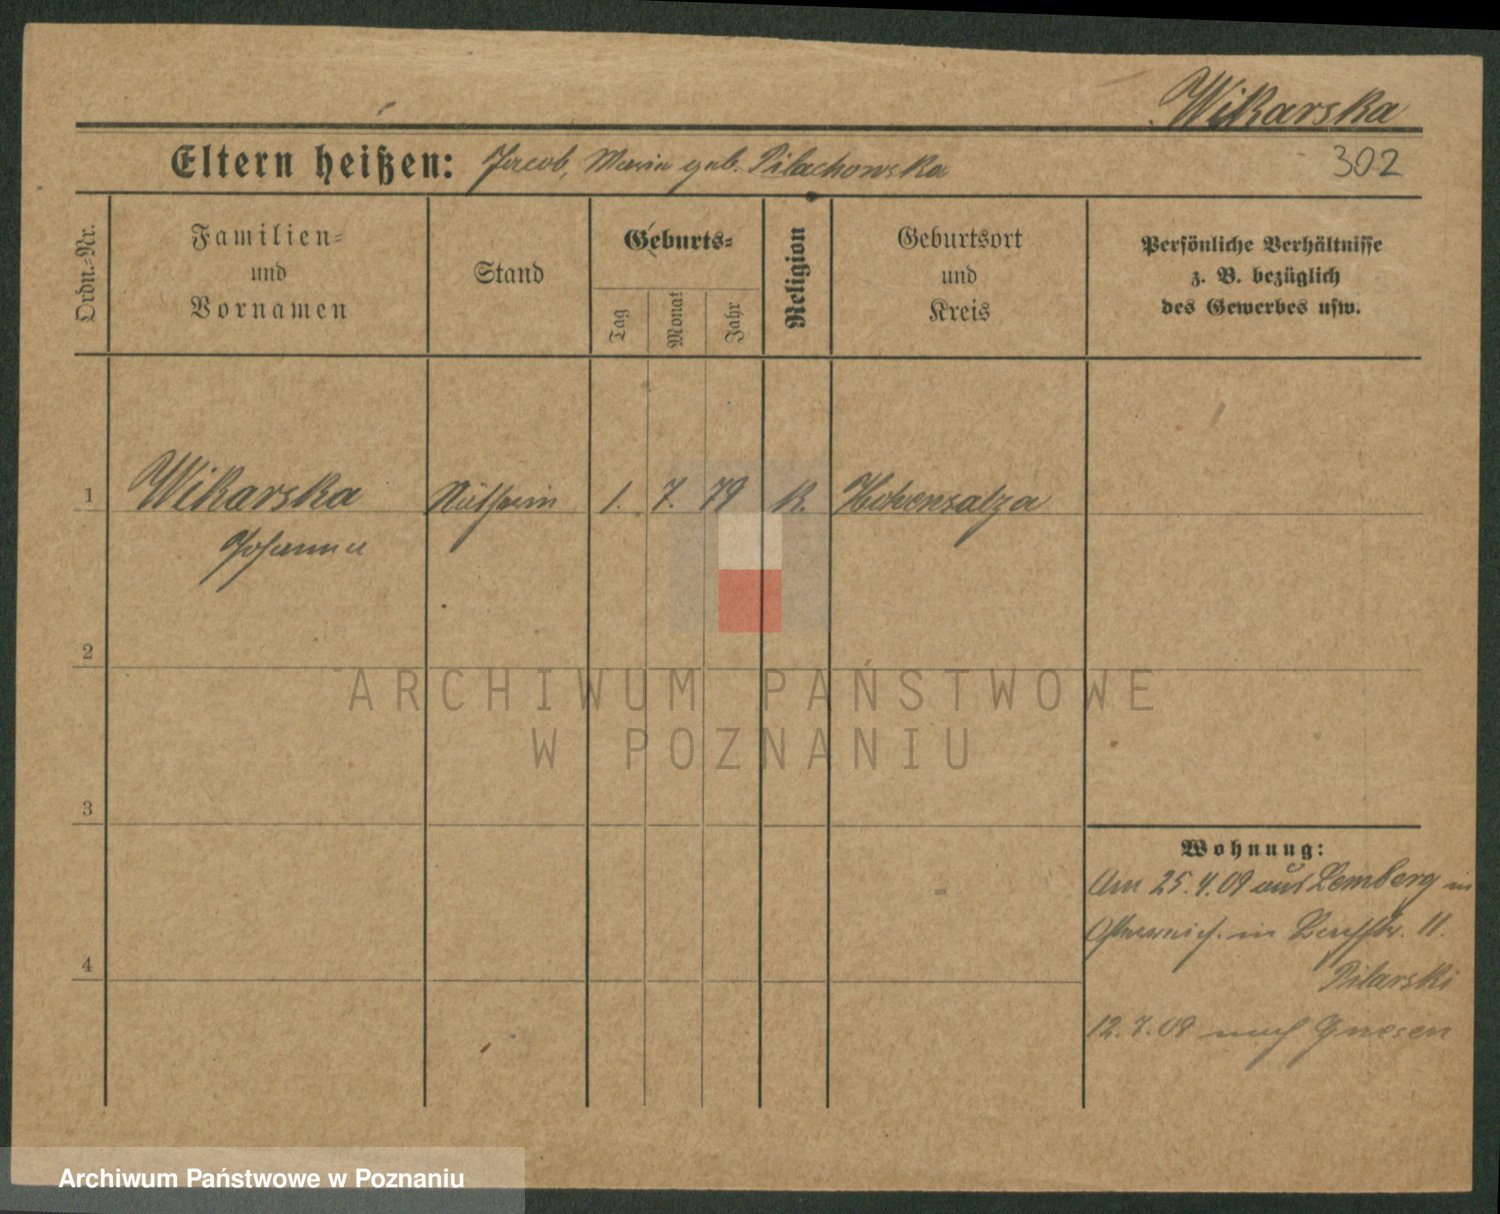 Wikarska
Eltern heißen: Jacob, Maria geb. Pilachowska
302
Ordn.-Nr.
Familien-
und
Vornamen
Stand
Geburts-
Tag
Monat
Jahr
Religion
Geburtsort
und
Kreis
Persönliche Verhältnisse
z. B. bezüglich
des Gewerbes usw.
1 Wikarska 1. 7. 79 K. Hohensalza
Johanna
2
3
4
Wohnung:
Am 25.4.09 aus Lemberg in
in 11.
Pilarski
12.7.09 nach Gnesen
ARCHIWUM PAŃSTWOWE
W POZNANIU
Archiwum Państwowe w Poznaniu